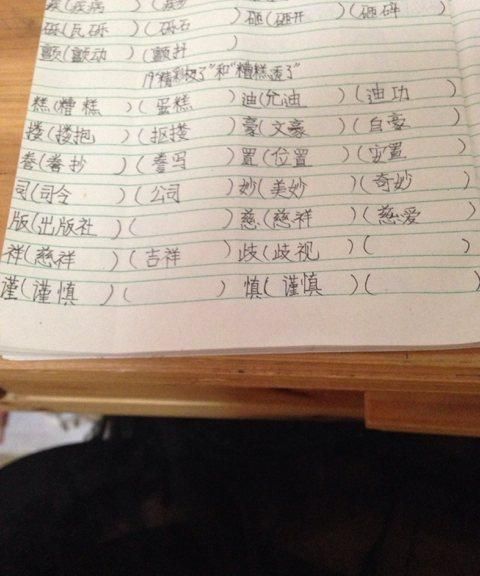 (疾病 )(
砾(瓦砾 )(砾石 ) 砸(砸开 )(砸碎 )
颤(颤动 )(颤抖 )
19"精彩极了"和"糟糕透了"
糕(糟糕 )(蛋糕 ) 油( 油 )(油功 )
搂(搂抱 )(抠搂 ) 豪(文豪 )(自豪 )
誊(誊抄 )(誊写 ) 置(位置 )(安置 )
司(司令 )(公司 ) 妙(美妙 )(奇妙 )
版(出版社 )( ) 慈(慈祥 )(慈爱 )
祥(慈祥 )(吉祥 ) 歧(歧视 )( )
谨(谨慎 )( ) 慎(谨慎 )( )